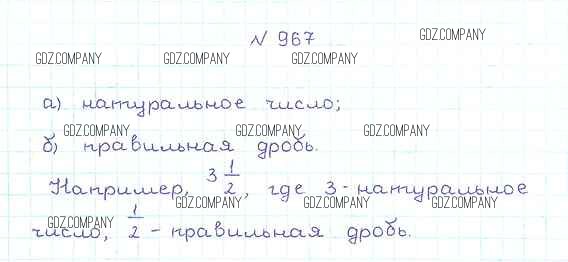 № 967
GDZ.COMPANY
GDZ.COMPANY GDZ.COMPANY GDZ.COMPANY
а) натуральное число;
GDZ.COMPANY GDZ.COMPANY GDZ.COMPANY
б) правильная дробь.
Например, 3 1/2, где 3 - натуральное
GDZ.COMPANY GDZ.COMPANY GDZ.COMPANY
GDZ.COMPANY
число, 1/2 - правильная дробь.